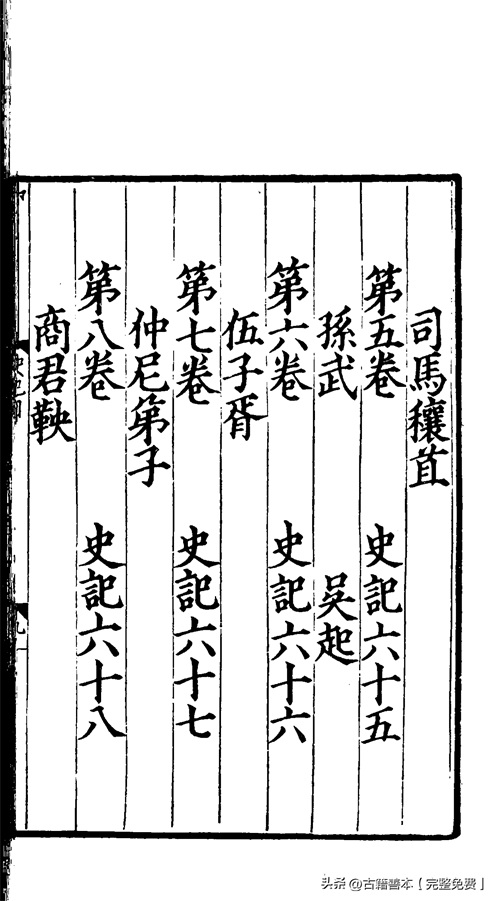 司馬穰苴
第五卷 史記六十五
孫武 吳起
第六卷 史記六十六
伍子胥
第七卷 史記六十七
仲尼弟子
第八卷 史記六十八
商君鞅
头条 @古籍善本【完整免费】